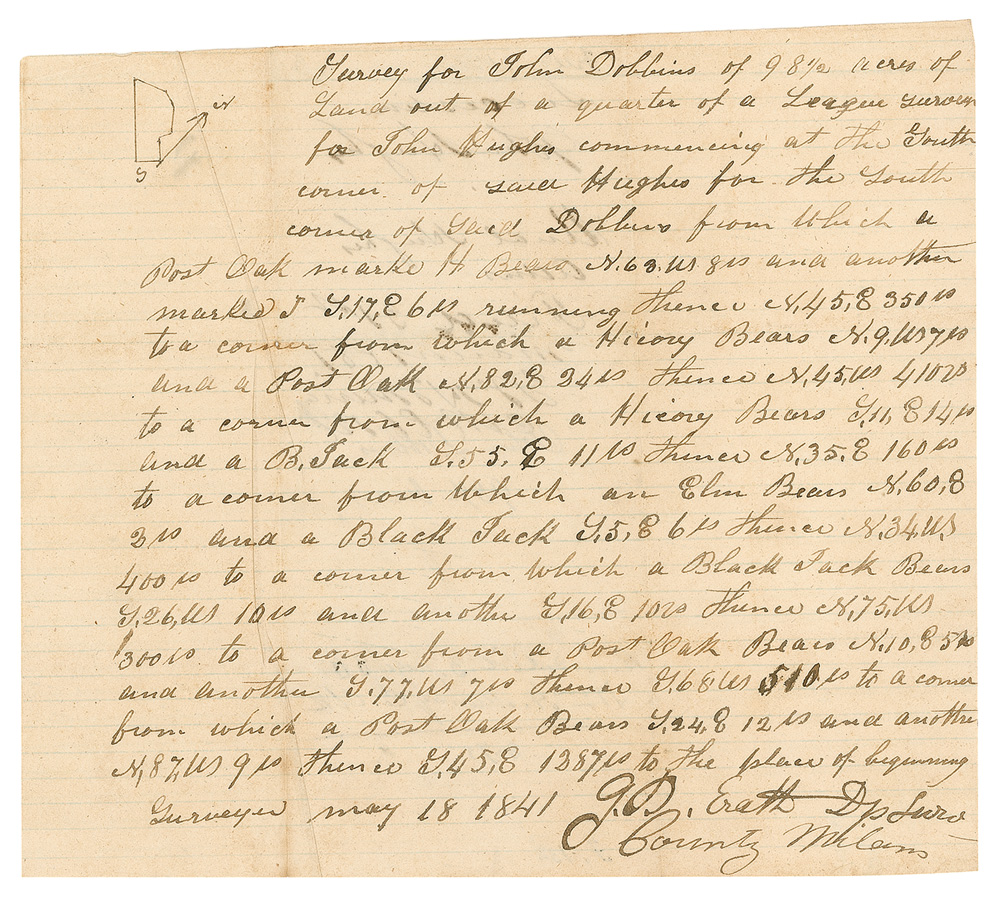 N
S
Survey for John Dobbins of 98 1/2 acres of
Land out of a quarter of a League survey
for John Hughes commencing at the South
corner of said Hughes for the South
corner of said Dobbins from which a
Post Oak marke H Bears N.63.W 8 vs and another
marked J S.17,E 6 vs running thence N.45,E 350 vs
to a corner from which a Hicory Bears N.9,W 7 vs
and a Post Oak N.82,E 24 vs thence N.45,W 410 vs
to a corner from which a Hicory Bears S.11,E 14 vs
and a B. Jack S.55.E 11 vs thence N.35.E 160 vs
to a corner from which an Elm Bears N.60,E
3 vs and a Black Jack S.5,E 6 vs thence N.34,W
400 vs to a corner from which a Black Jack Bears
S.26,W 10 vs and another S.16,E 10 vs thence N.75,W
300 vs to a corner from a Post Oak Bears N.10,E 5 vs
and another S.77,W 7 vs thence S.68 W 510 vs to a corner
from which a Post Oak Bears S.24,E 12 vs and another
N,87,W 9 vs thence S.45,E 1387 vs to the place of beginning
Surveyed may 18 1841 G.B. Erath Dp Surv
County Milam